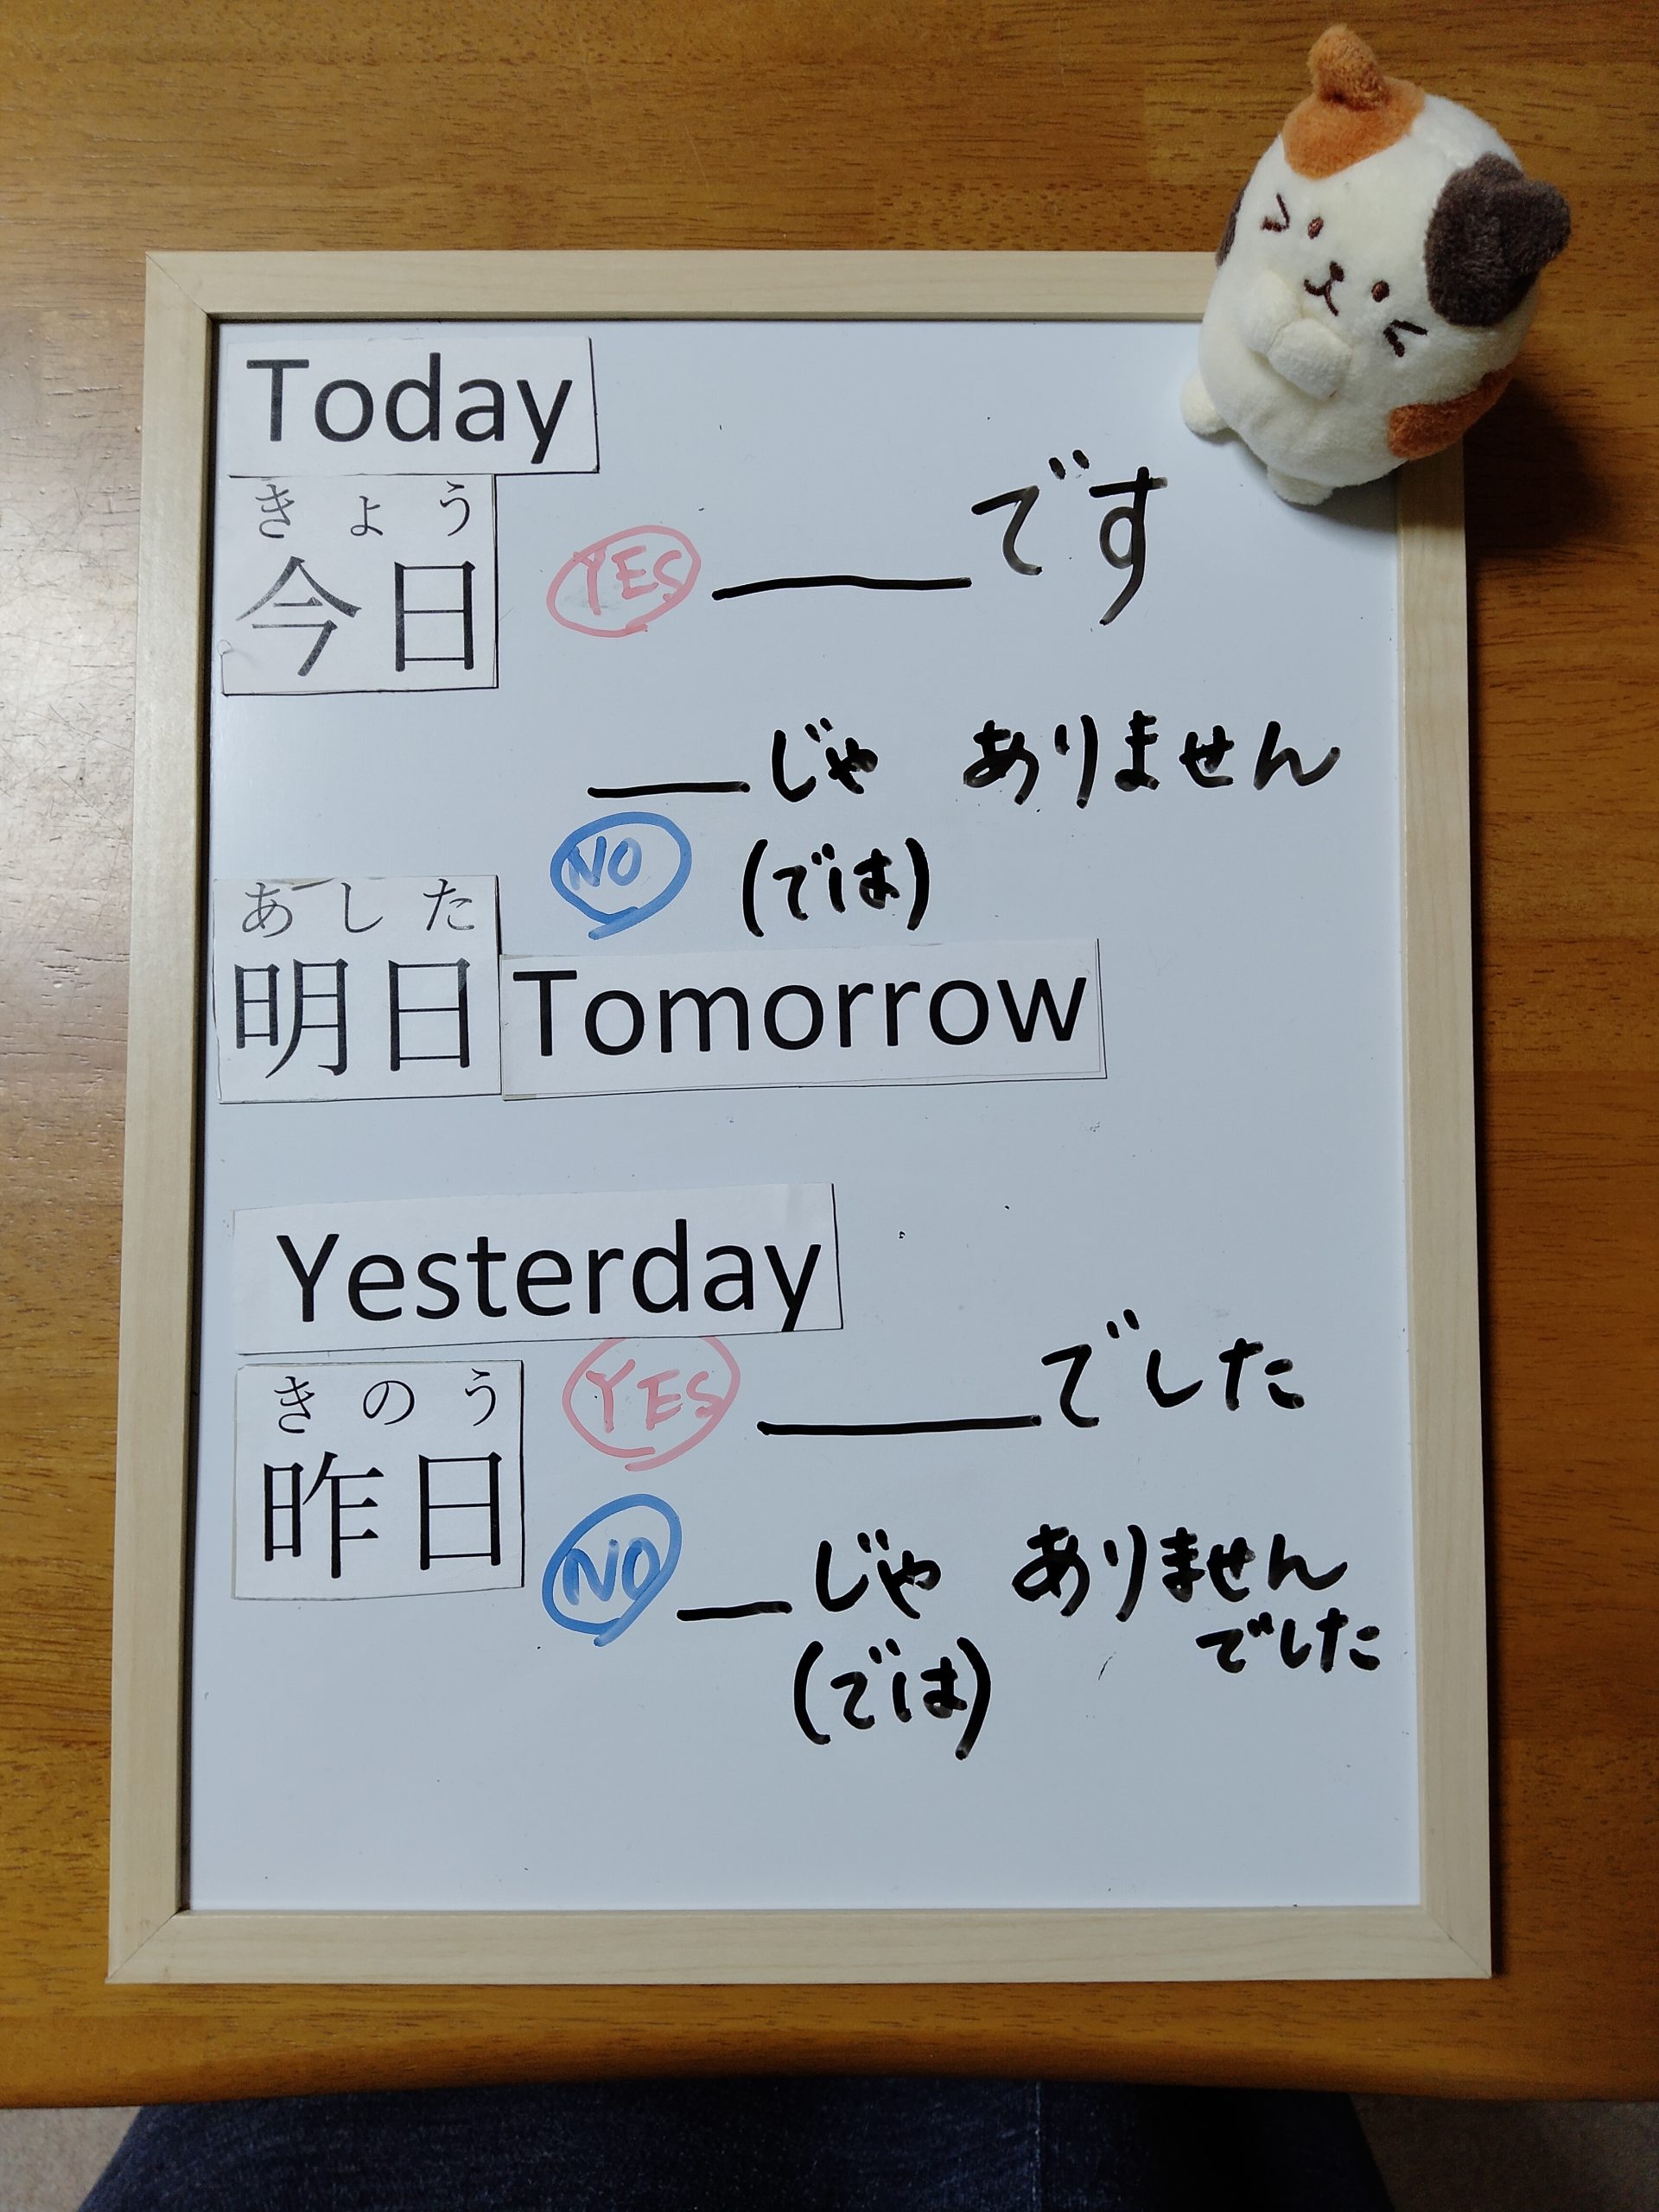 Today
きょう
今日
YES ＿＿です
＿＿じゃ ありません
NO (では)
あした
明日 Tomorrow
Yesterday
きのう
昨日
YES ＿＿でした
NO ＿じゃ ありません
でした
(では)